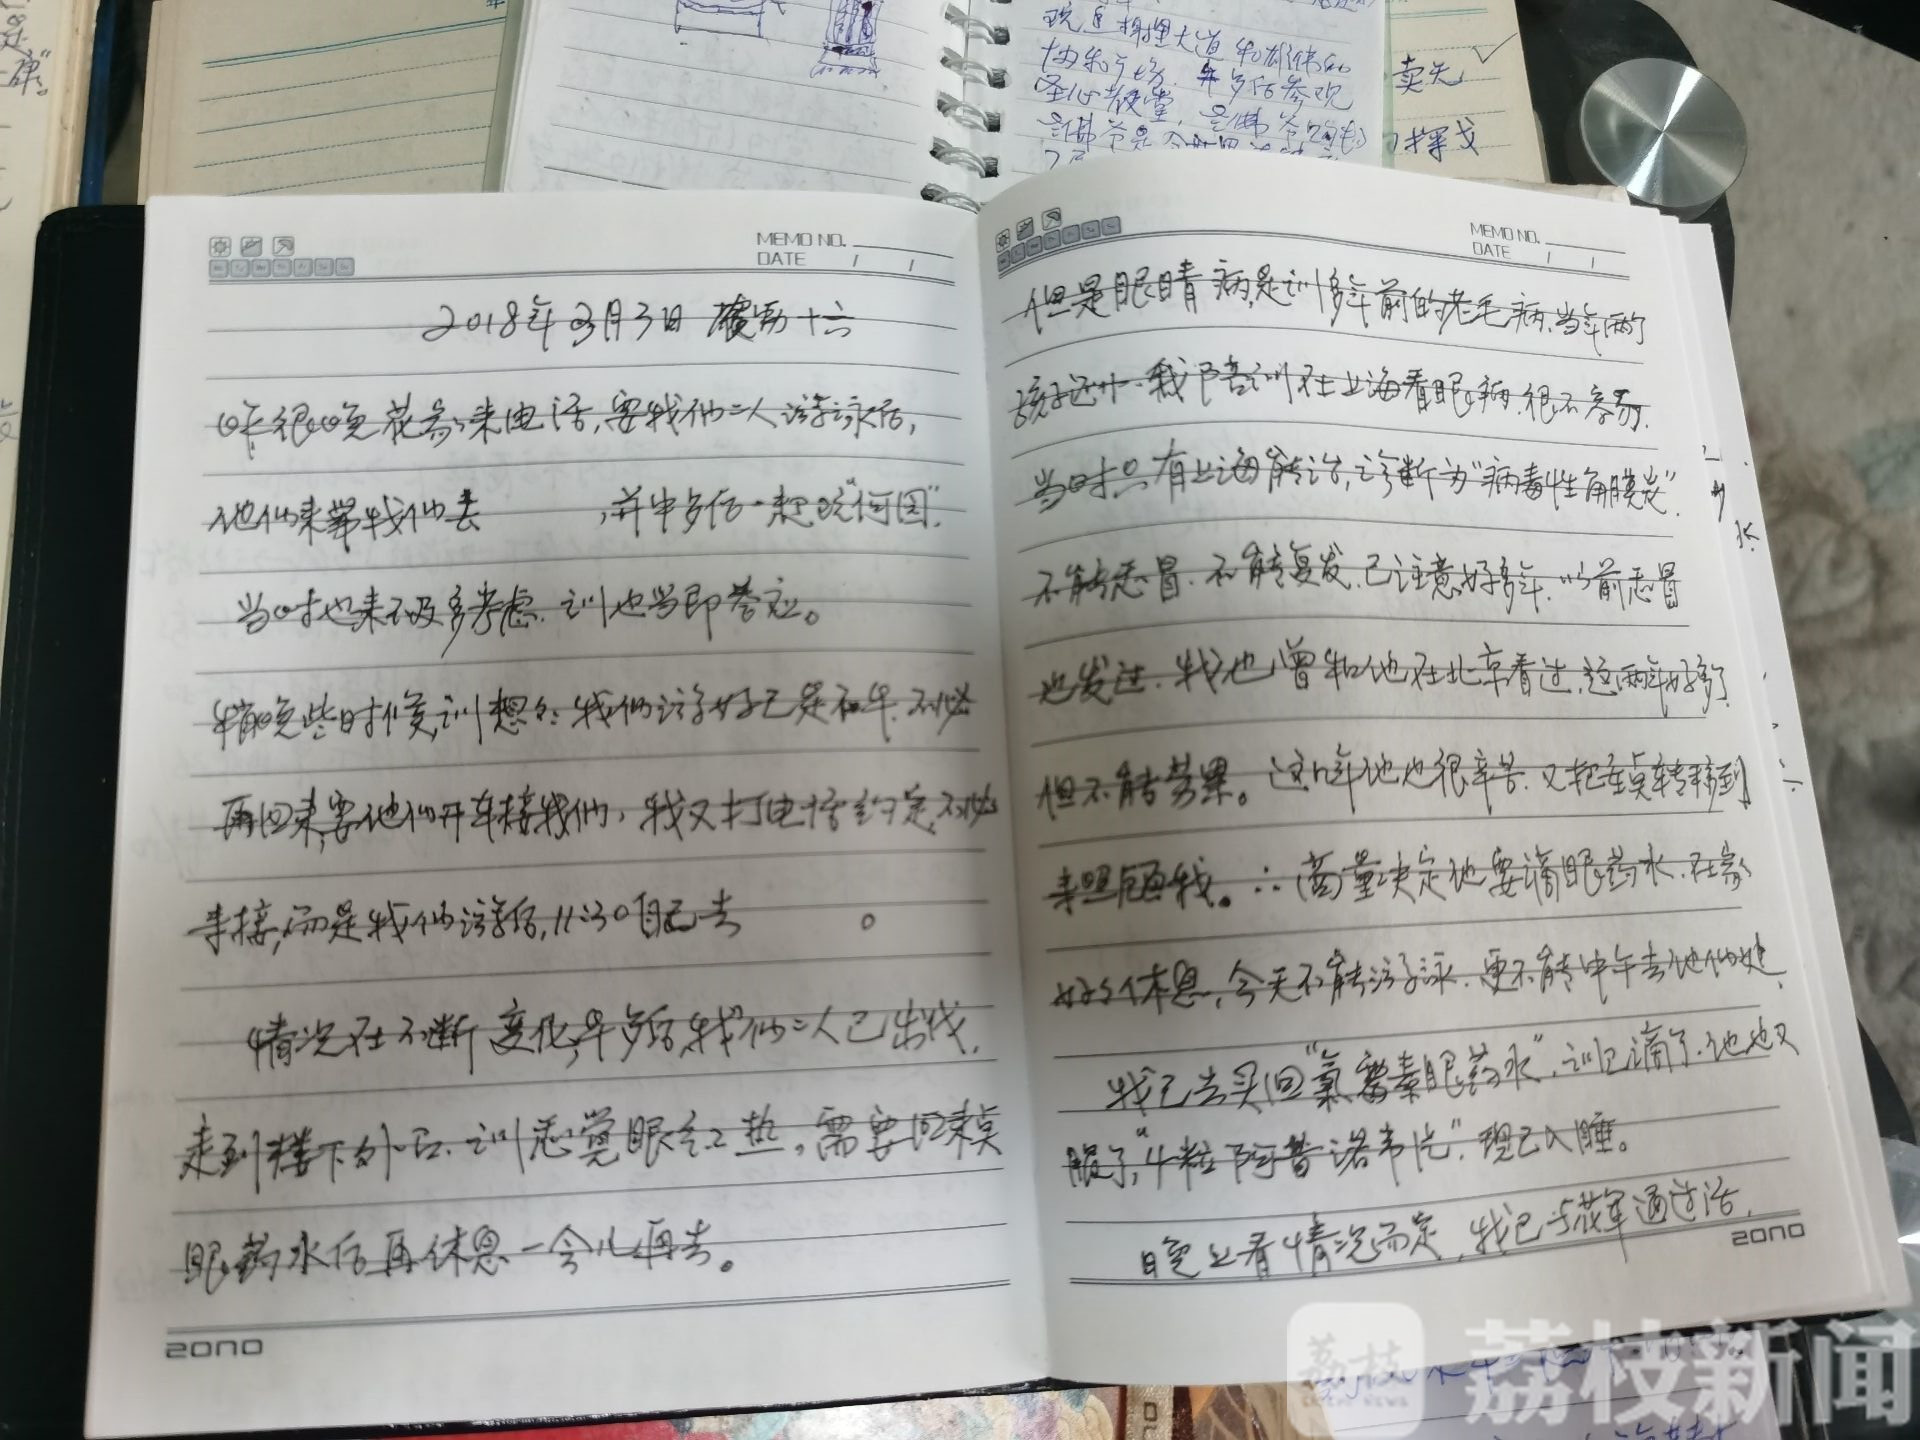 现
大道和雄伟的
协和广场.
圣心教堂,
卖光
MEMO NO.
DATE / /
2018年3月3日 十六
昨很晚 来电话,要我们二人游泳后,
他们来带我们去 ,并中午后一起 "何园".
当时也来不及多考虑.训也当即答应。
稍晚些时候,训想想:我们游好已是不早.不必
再回来,要他们开车接我们,我又打电话约定,不必
来接,而是我们游后,11:30自己去 。
情况在不断变化,早 后,我们二人已出发,
走到楼下外面.训感觉眼红热,需要回来点
眼药水后再休息一会儿再去。
2ono
MEMO NO.
DATE / /
但是眼睛病,是训多年前的老毛病.当年两个
孩子还小.我陪训在上海看眼病.很不容易.
当时只有上海能治,诊断为"病毒性角膜炎".
不能感冒.不能复发.已注意好多年.以前感冒
也发过.我也曾和他在北京看过,这两年好多了.
但不能劳累。这几年他也很辛苦.又把重点转移到
来照顾我。∴商量决定他要滴眼药水.在家
好好休息,今天不能游泳.更不能中午去他们处.
我已去买回"氯霉素眼药水",训已滴了.他也又
服了"4粒阿昔洛韦片".现已入睡。
晚上看情况而定,我已与 通过话,
2ono
荔枝新闻
荔枝新闻